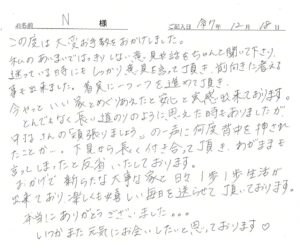 お名前 N 様 ご記入日 令7年12月18日
この度は大変お手数をおかけしました。
私のあいまいではっきりしない意見や話をちゃんと聞いて下さり、
迷っている時にも しっかり意見を言って頂き 前向きに考える
事も出来ました。着実に一つ一つを進めて頂き、
今やっといい家とめぐりあえたと安心と実感出来ております。
とんでもなく長い道のりのように思えた時もありましたが
さんの「頑張りましょう」の一声に何度背中を押され
たことか…。下見から長く付き合って頂き、わがままも
言ってしまったと反省いたしております。
おかげで新たな大事な家で 日々1歩1歩生活が
出来ており 楽しくも嬉しい毎日を送らせて頂いております。
本当にありがとうございました…
いつかまた元気にお会いしたいと思っております♡